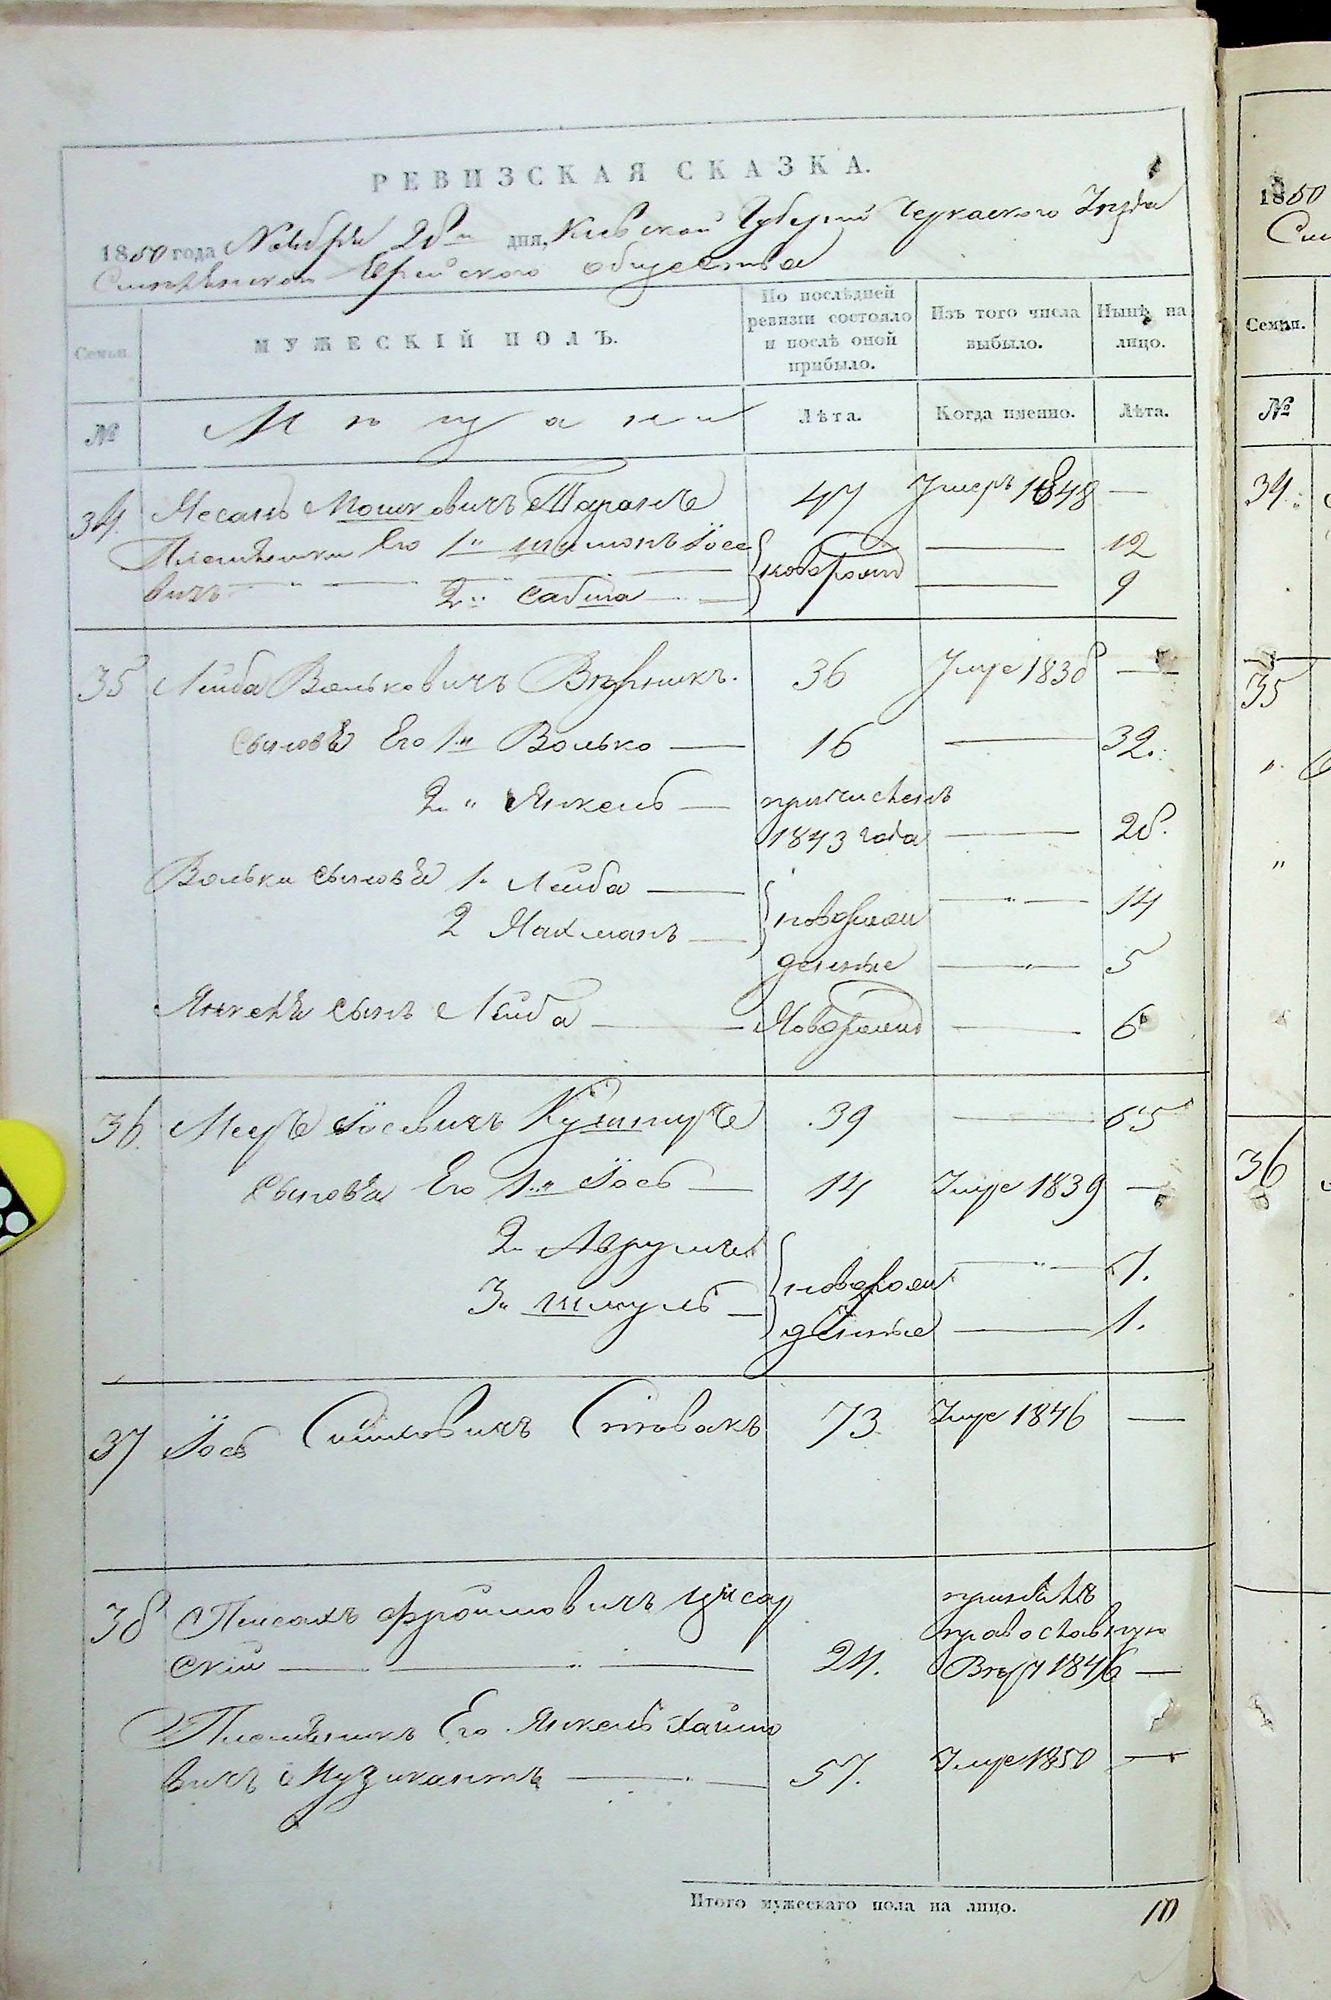 РЕВИЗСКАЯ СКАЗКА.
1850 года Ноября 28 дня, Кіевской Губерніи Черкаского Уезда
Еврейского общества
Семьи.
МУЖЕСКІЙ ПОЛЪ.
По послѣдней ревизіи состояло и послѣ оной прибыло.
Изъ того числа выбыло.
Нынѣ на лицо.
№
Мѣщани
Лѣта.
Когда именно.
Лѣта.
34. Мошковичъ Таранъ 47 Умеръ 1848 —
Племянники Его 1й Шимонъ Іосе
вичъ — — новорожд — 12
2й — — 9
35 Лейба Вольковичъ 36 Умре 1838 —
сыновья Его 1й Волько — 16 — 32.
2й Янкель — причисленъ
1843 года — 28.
Вольки сыновья 1й Лейба — новорож — 14
2 Нахманъ — денные — 5
Янкеля сынъ Лейба — Новорожд — 6
36. Мееръ Іосевичъ 39 — 65
сыновья Его 1й Іось — 14 Умре 1839 —
2й Аврумъ новорож — 7.
3й Шмуль — денные — 1.
37 Іось 73 Умре 1846 —
38 Пейсахъ Фроимовичъ Цисар
скій — 24. принялъ православную Вѣру 1846 —
Племянникъ Его Янкель Хаимо
вичъ Музикантъ — 57. Умре 1850 —
Итого мужескаго пола на лицо. 10
1850
Семьи.
№
34.
35
"
"
36